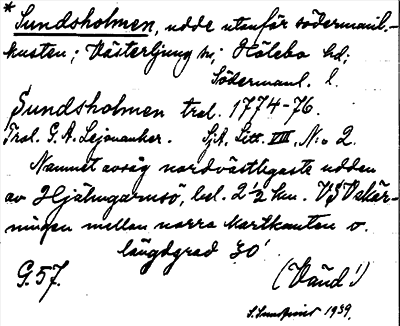 * Sundsholmen, udde utanför södermanl.-
kusten; Västerljung sn; Hölebo hd;
Södermanl. l.
Sundsholmen trol. 1774-76.
Trol. G. A. Lejonanker. SjA, Litt. VIII, N:o 2.
Namnet avsåg nordvästligaste udden
av Hjälmgarnsö, bel. 2 ½ km. VS Vskär-
ningen mellan norra kartkanten o.
längdgrad 30'
G. 57. (Vänd!)
S. Lundqvist 1939.